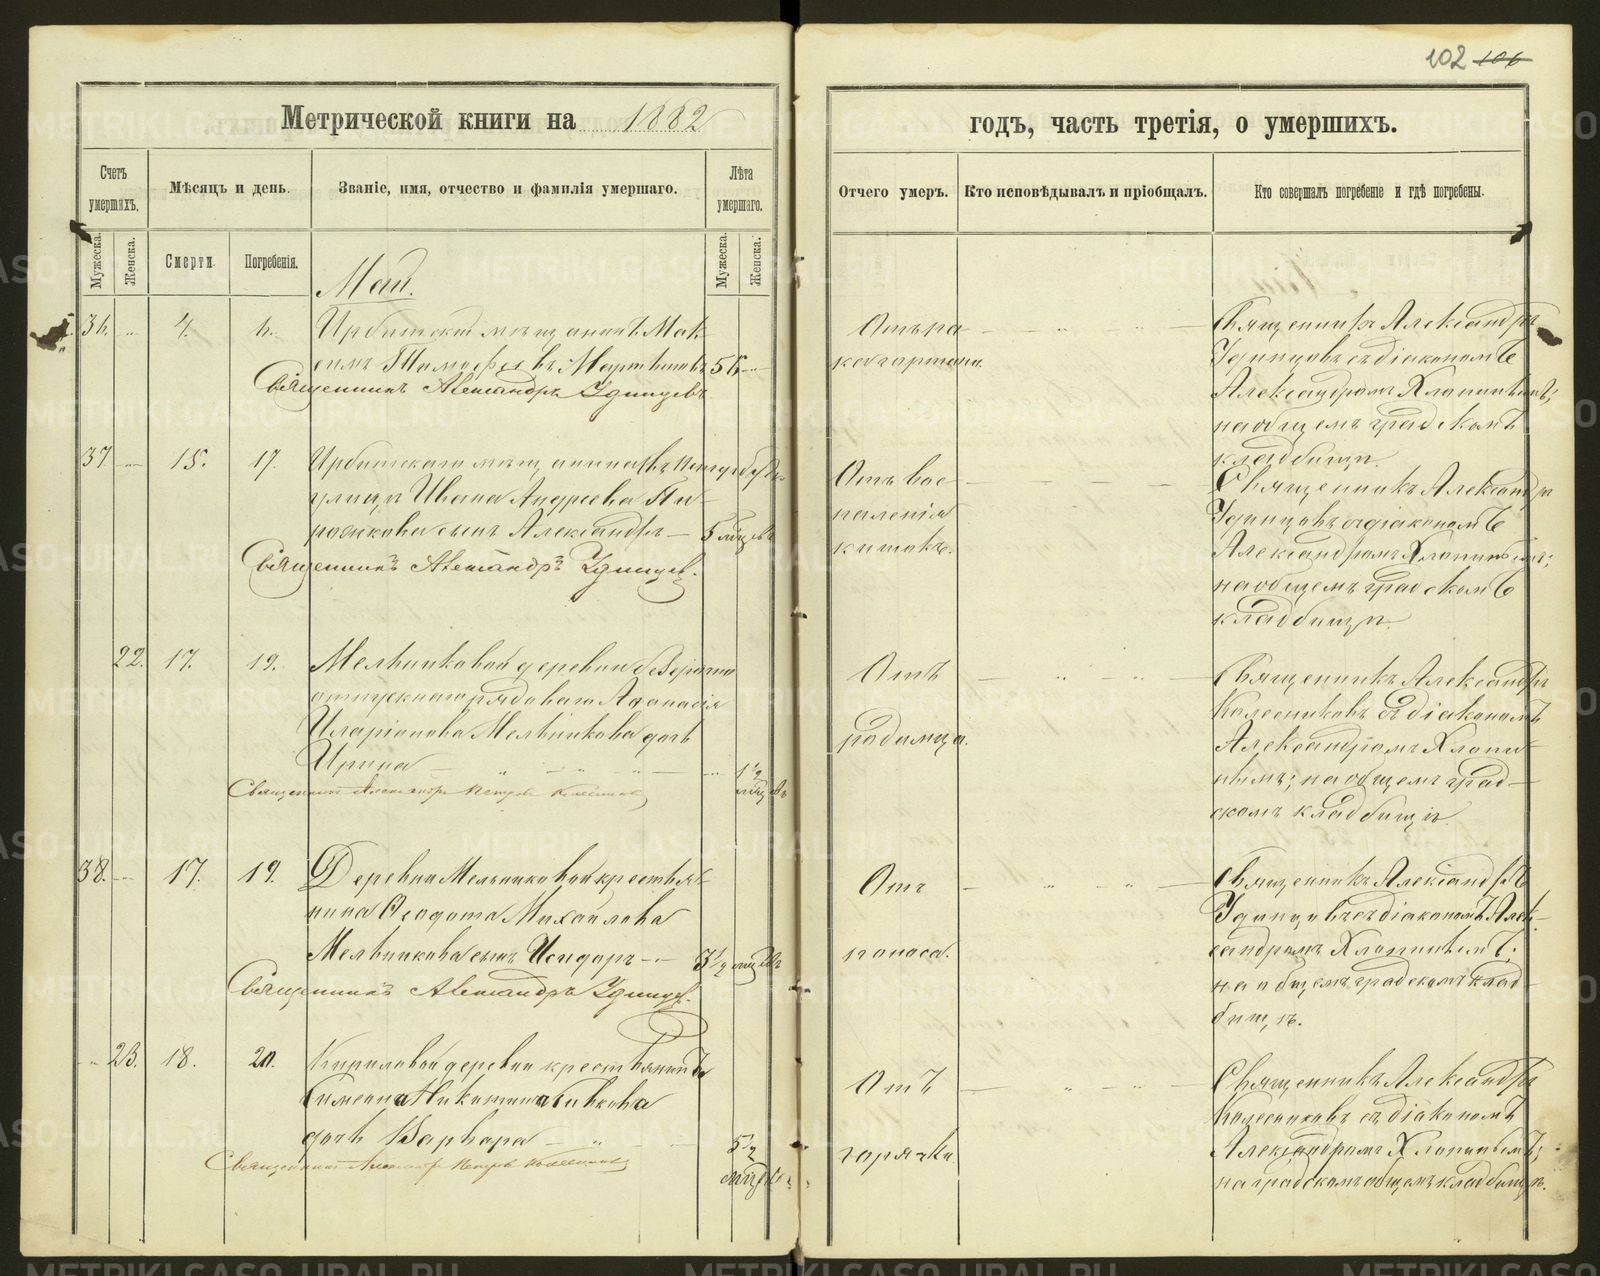 102 106
Метрической книги на 1882
годъ, часть третія, о умершихъ.
Счетъ умершихъ.
Мѣсяцъ и день.
Званіе, имя, отчество и фамилія умершаго.
Лѣта умершаго.
Отчего умеръ.
Кто исповѣдывалъ и пріобщалъ.
Кто совершалъ погребеніе и гдѣ погребены.
Мужеска.
Женска.
Смерти.
Погребенія.
Мужеска.
Женска.
Май.
36. 4. 6. Ирбитскій мѣщанинъ Мак-
симъ Тимофѣевъ Мартыновъ 56
Священникъ Александръ Удинцевъ
Отъ ра-
ка
Священникъ Александръ
Удинцовъ съ діакономъ
Александромъ Хлопинымъ;
на общемъ градскомъ
кладбищѣ.
37 15. 17. Ирбитскаго мѣщанина
улицы Ивана Андреева Пи-
рожкова сынъ Александръ 5 мѣсцевъ
Священникъ Александръ Удинцев.
Отъ вос-
паленія
кишокъ.
Священникъ Александръ
Удинцовъ съ діакономъ
Александромъ Хлопинымъ;
на общемъ градскомъ
кладбищѣ.
22. 17. 19. Мельниковой деревни безсрочно
отпускнаго рядоваго Афанасія
Иларіонова Мельникова дочь
Ирина 1½
мѣсцевъ
Священникъ Александръ Петровъ Колесников
Отъ
родимца.
Священникъ Александръ
Колесниковъ съ діакономъ
Александромъ Хлопи-
нымъ; на общемъ град-
скомъ кладбищѣ.
38. 17. 19. Деревни Мельниковой крестья-
нина Ѳеодота Михайлова
Мельникова сынъ Исидоръ 3½ мѣсцевъ
Священникъ Александръ Удинцев.
Отъ
поноса.
Священникъ Александръ
Удинцовъ съ діакономъ Алек-
сандромъ Хлопинымъ;
на общемъ градскомъ клад-
бищѣ.
23. 18. 20. Кириловой деревни крестьянина
Симеона Никитина
дочь Варвара 5½
мѣсц
Священникъ Александръ Петровъ Колесников
Отъ
горячки
Священникъ Александръ
Колесниковъ съ діакономъ
Александромъ Хлопинымъ;
на градскомъ общемъ кладбищѣ.
METRIKI.GASO-URAL.RU